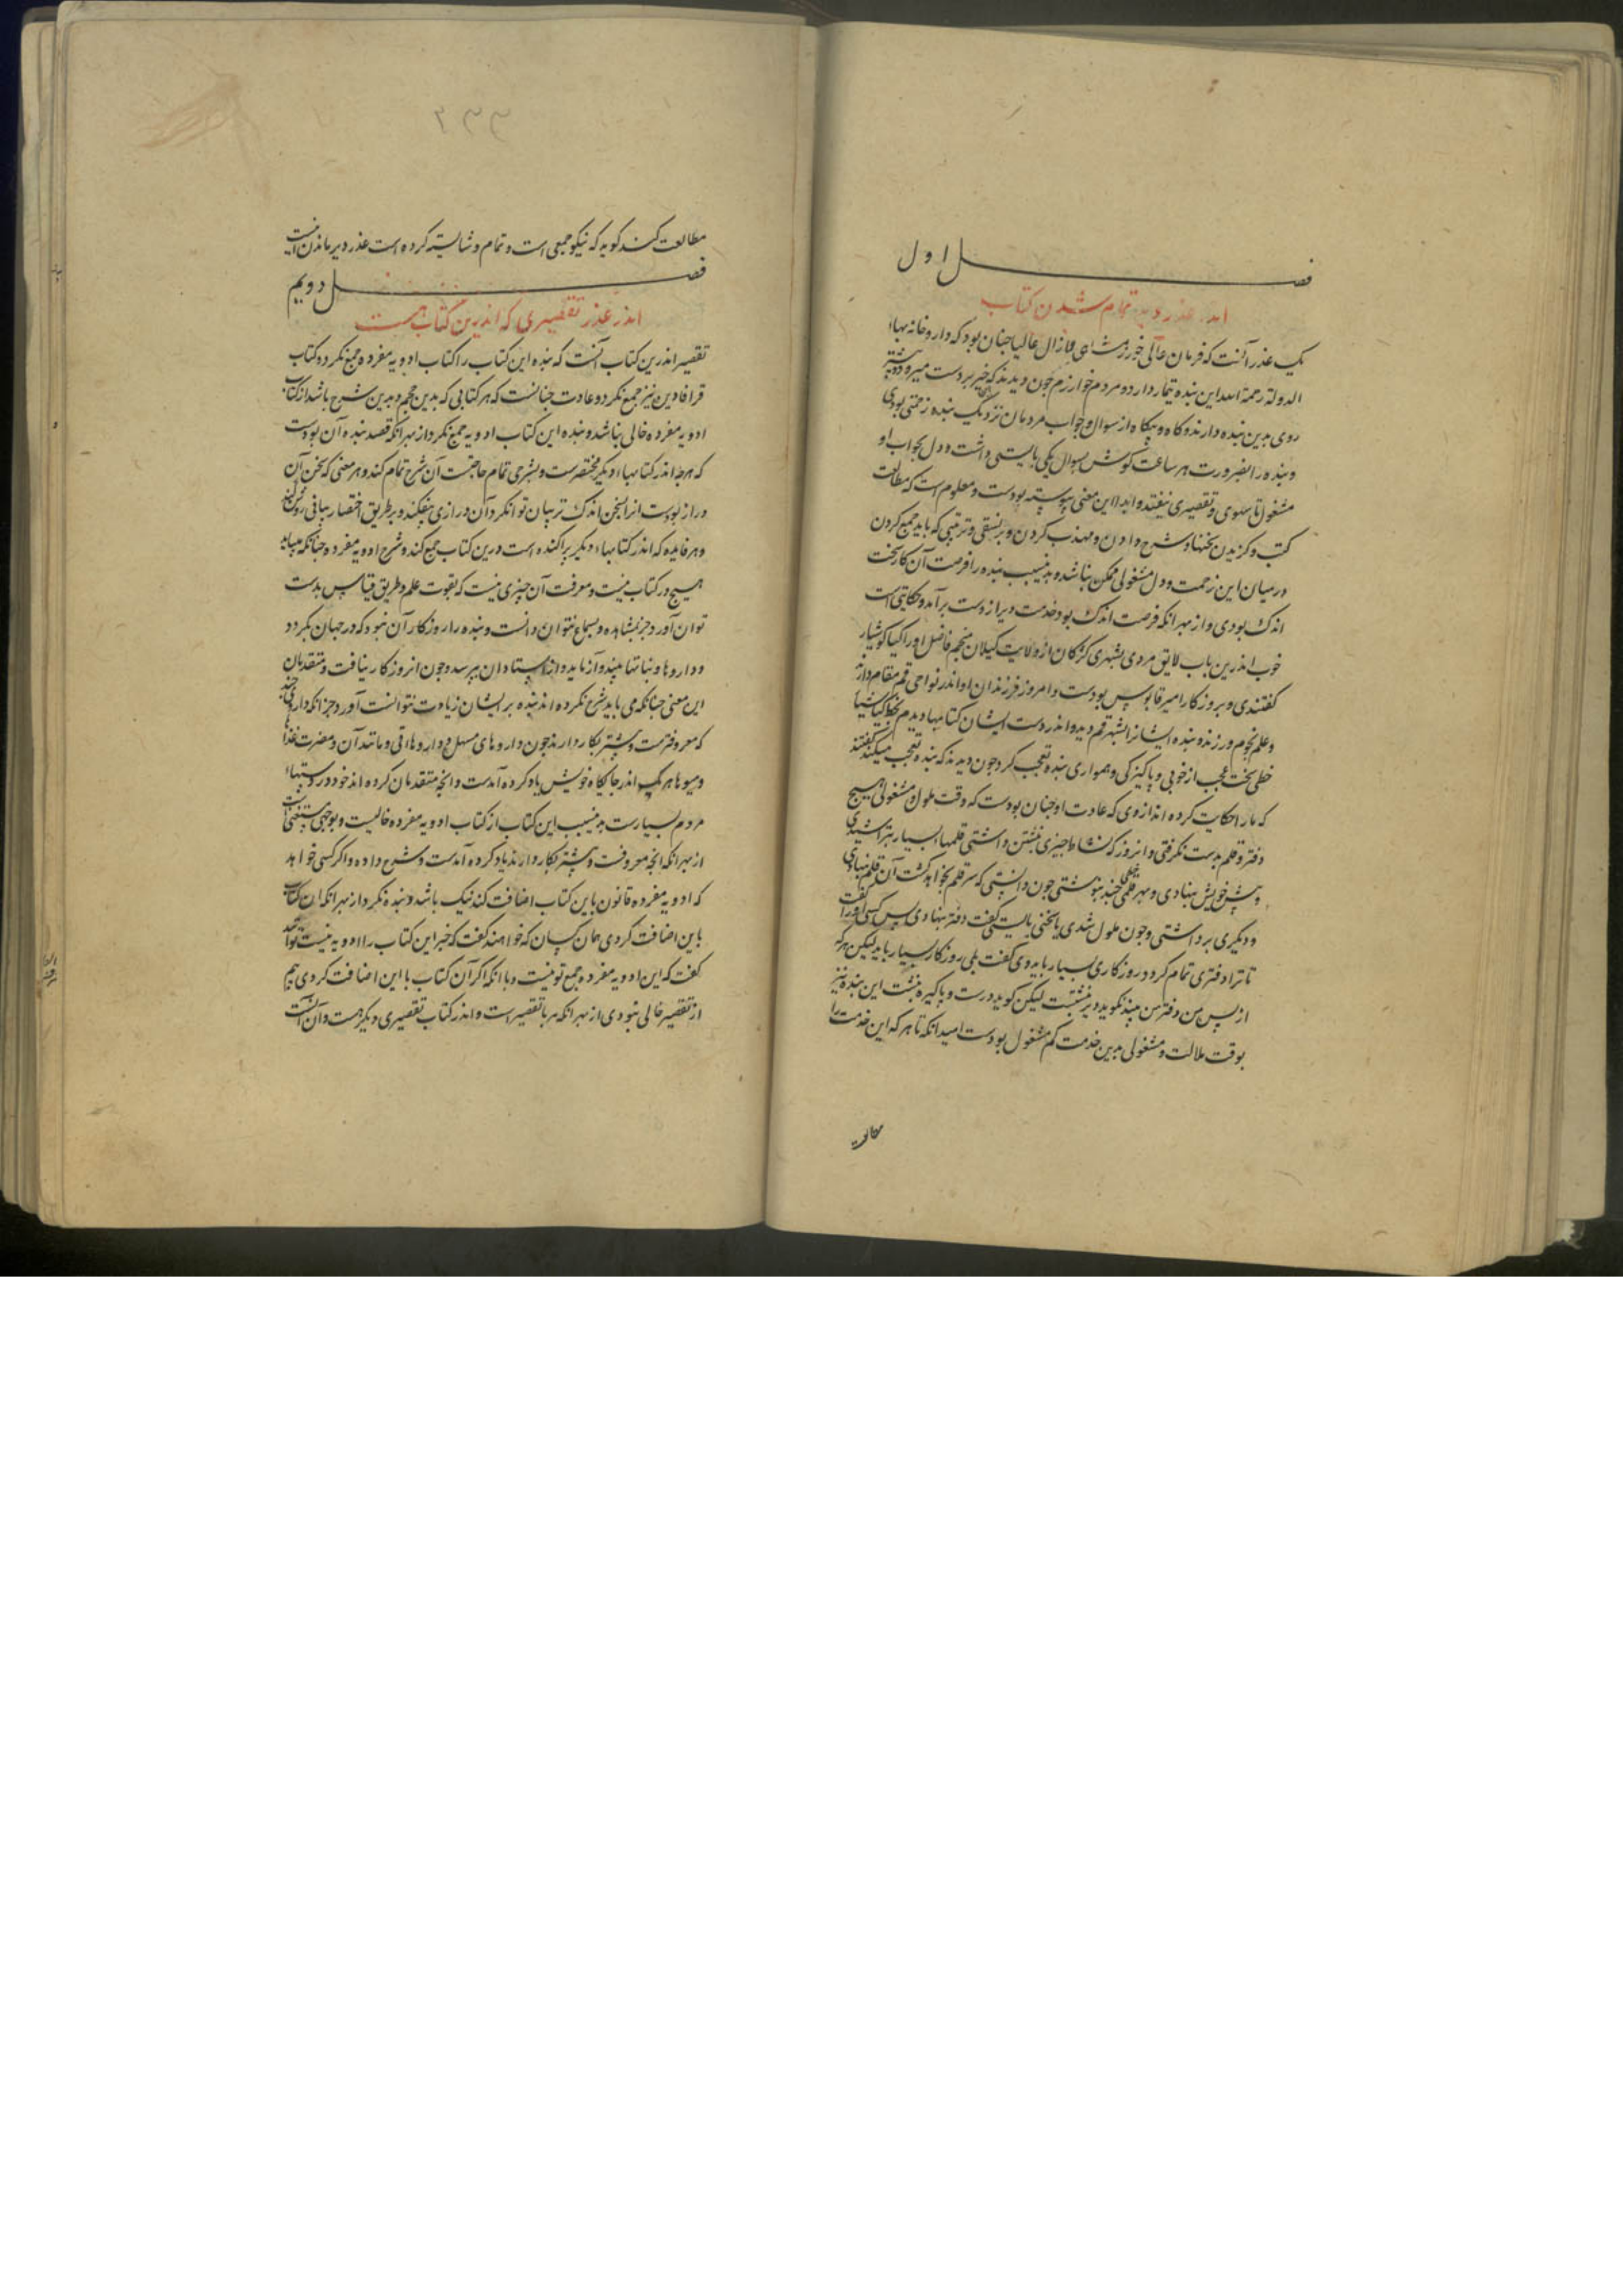 فصل اول
اندر عذر دیر تمام شدن کتاب
یک عذر آنست که فرمان عالی خوارزمشاهی لازال عالیا چنان بود که داروخانه بهاء
الدوله رحمة الله این بنده تیمار دارد و مردم خوارزم چون دیدند که خیر بر دست میرود بیشتر
روی بدین بنده دارند و کاه و بیکاه از سوال و جواب مردمان نزدیک بنده زحمتی بودی
و بنده را بضرورت هر ساعت کوش بسوال یکی بایستی داشت و دل بجواب او
مشغول تا سهوی و تقصیری نیفتد و ابدا این معنی پیوسته بودست و معلوم است که مطالعت
کتب و کزیدن سخنها و شرح دادن و مهذب کردن و بر نسقی و ترتیبی که باید جمع کردن
در میان این زحمت و دل مشغولی ممکن نباشد و بدینسبب بنده را فرصت آن کار سخت
اندک بودی و از بهر آنکه فرصت اندک بود خدمت دیر از دست برآمد و حکایتی است
خوب اندرین باب لایق مردی بشهری کرکان از ولایت کیلان منجم فاضل او را کیا کوشیار
کفتندی و بروزکار امیر قابوس بودست و امروز فرزندان او اندر نواحی قم مقام دارند
و علم نجوم ورزند و بنده ایشانرا بشهر قم دید و اندر دست ایشان کتابها دیدم بخط کیا کوشیار
خطی سخت عجب از خوبی و پاکیزکی و همواری بنده تعجب کرد چون دیدند که بنده تعجب میکند کفتند
که ما را حکایت کرده اند از وی که عادت او چنان بودست که وقت ملول و مشغولی هیچ
دفتر و قلم بدست نکرفتی و انروز که نشاط چیزی نبشتن داشتی قلمهاء بسیار بتراشیدی
و پیش خویش بنهادی و بهر قلمی خطی چند بنوشتی چون دانستی که سر قلم بخواهد کشت آن قلم بنهادی
و دیکری برداشتی و چون ملول شدی یا سخنی بایستی کفت دفتر بنهادی پس کسی او را کفت
تا ترا دفتری تمام کردد روزکاری بسیار باید وی کفت بلی روزکار بسیار باید لیکن هر که
از پس من دفتر من بیند نکوید دیر نبشتست لیکن کوید درست و پاکیزه نبشت این بنده نیز
بوقت ملالت و مشغولی بدین خدمت کم مشغول بودست امید آنکه تا هر که این خدمت را
مطالعت
۲۳۳
مطالعت کند کوید که نیکو جمعی است و تمام و شایسته کرده است عذر دیر ماندن اینست
فصل دویم
اندر عذر تقصیری که اندرین کتاب هست
تقصیر اندرین کتاب آنست که بنده این کتاب را کتاب ادویه مفرده جمع نکرد و کتاب
قرافادین نیز جمع نکرد و عادت چنانست که هر کتابی که بدین حجم و بدین شرح باشد از کتاب
ادویه مفرده خالی نباشد و بنده این کتاب ادویه جمع نکرد از بهر آنکه قصد بنده آن بودست
که هرچه اندر کتابهاء دیکر مختصرست و بشرحی تمام حاجتست آن شرح تمام کند و هر معنی که سخن آن
دراز بودست انرا بسخن اندک تر بیان توان کرد آن درازی بیفکند و بر طریق اختصار بیانی روشن کند
و هر فایده که اندر کتابهاء دیکر پراکنده است درین کتاب جمع کند و شرح ادویه مفرده چنانکه میباید
هیچ در کتاب نیست و معرفت آن چیزی نیست که بقوت علم و طریق قیاس بدست
توان آورد جز بمشاهده و بسماع نتوان دانست و بنده را روزکار آن نبود که در جهان بکردد
و داروها و نباتها بیند و آزماید و از استادان بپرسد و چون انروزکار نیافت و متقدمان
این معنی چنانکه می باید شرح نکرده اند بنده بر ایشان زیادت نتوانست آورد جز انکه داروی چند
که معروفترست و بیشتر بکار دارند چون داروهای مسهل و داروهاء قی و مانند آن و مضرت غذاها
و میوها هر یک اندر جایکاه خویش یاد کرده آمدست و انچه متقدمان کرده اند خود در دستهاء
مردم بسیارست بدینسبب این کتاب از کتاب ادویه مفرده خالیست و بوجهی مستغنی است
از بهر انکه انچه معروفست و بیشتر بکار دارند یاد کرده آمدست و شرح داده و اکر کسی خواهد
که ادویه مفرده قانون باین کتاب اضافت کند نیک باشد و بنده نکرد از بهر انکه ان کتاب
باین اضافت کردی همان کسان که خواهند کفت که خیر این کتاب را ادویه نیست توانند
کفت که این ادویه مفرده جمع تو نیست و با انکه اکر آن کتاب با این اضافت کردی هم
از تقصیر خالی نبودی از بهر انکه هر با تقصیر است و اندر کتاب تقصیری دیکر هست و آن آنست